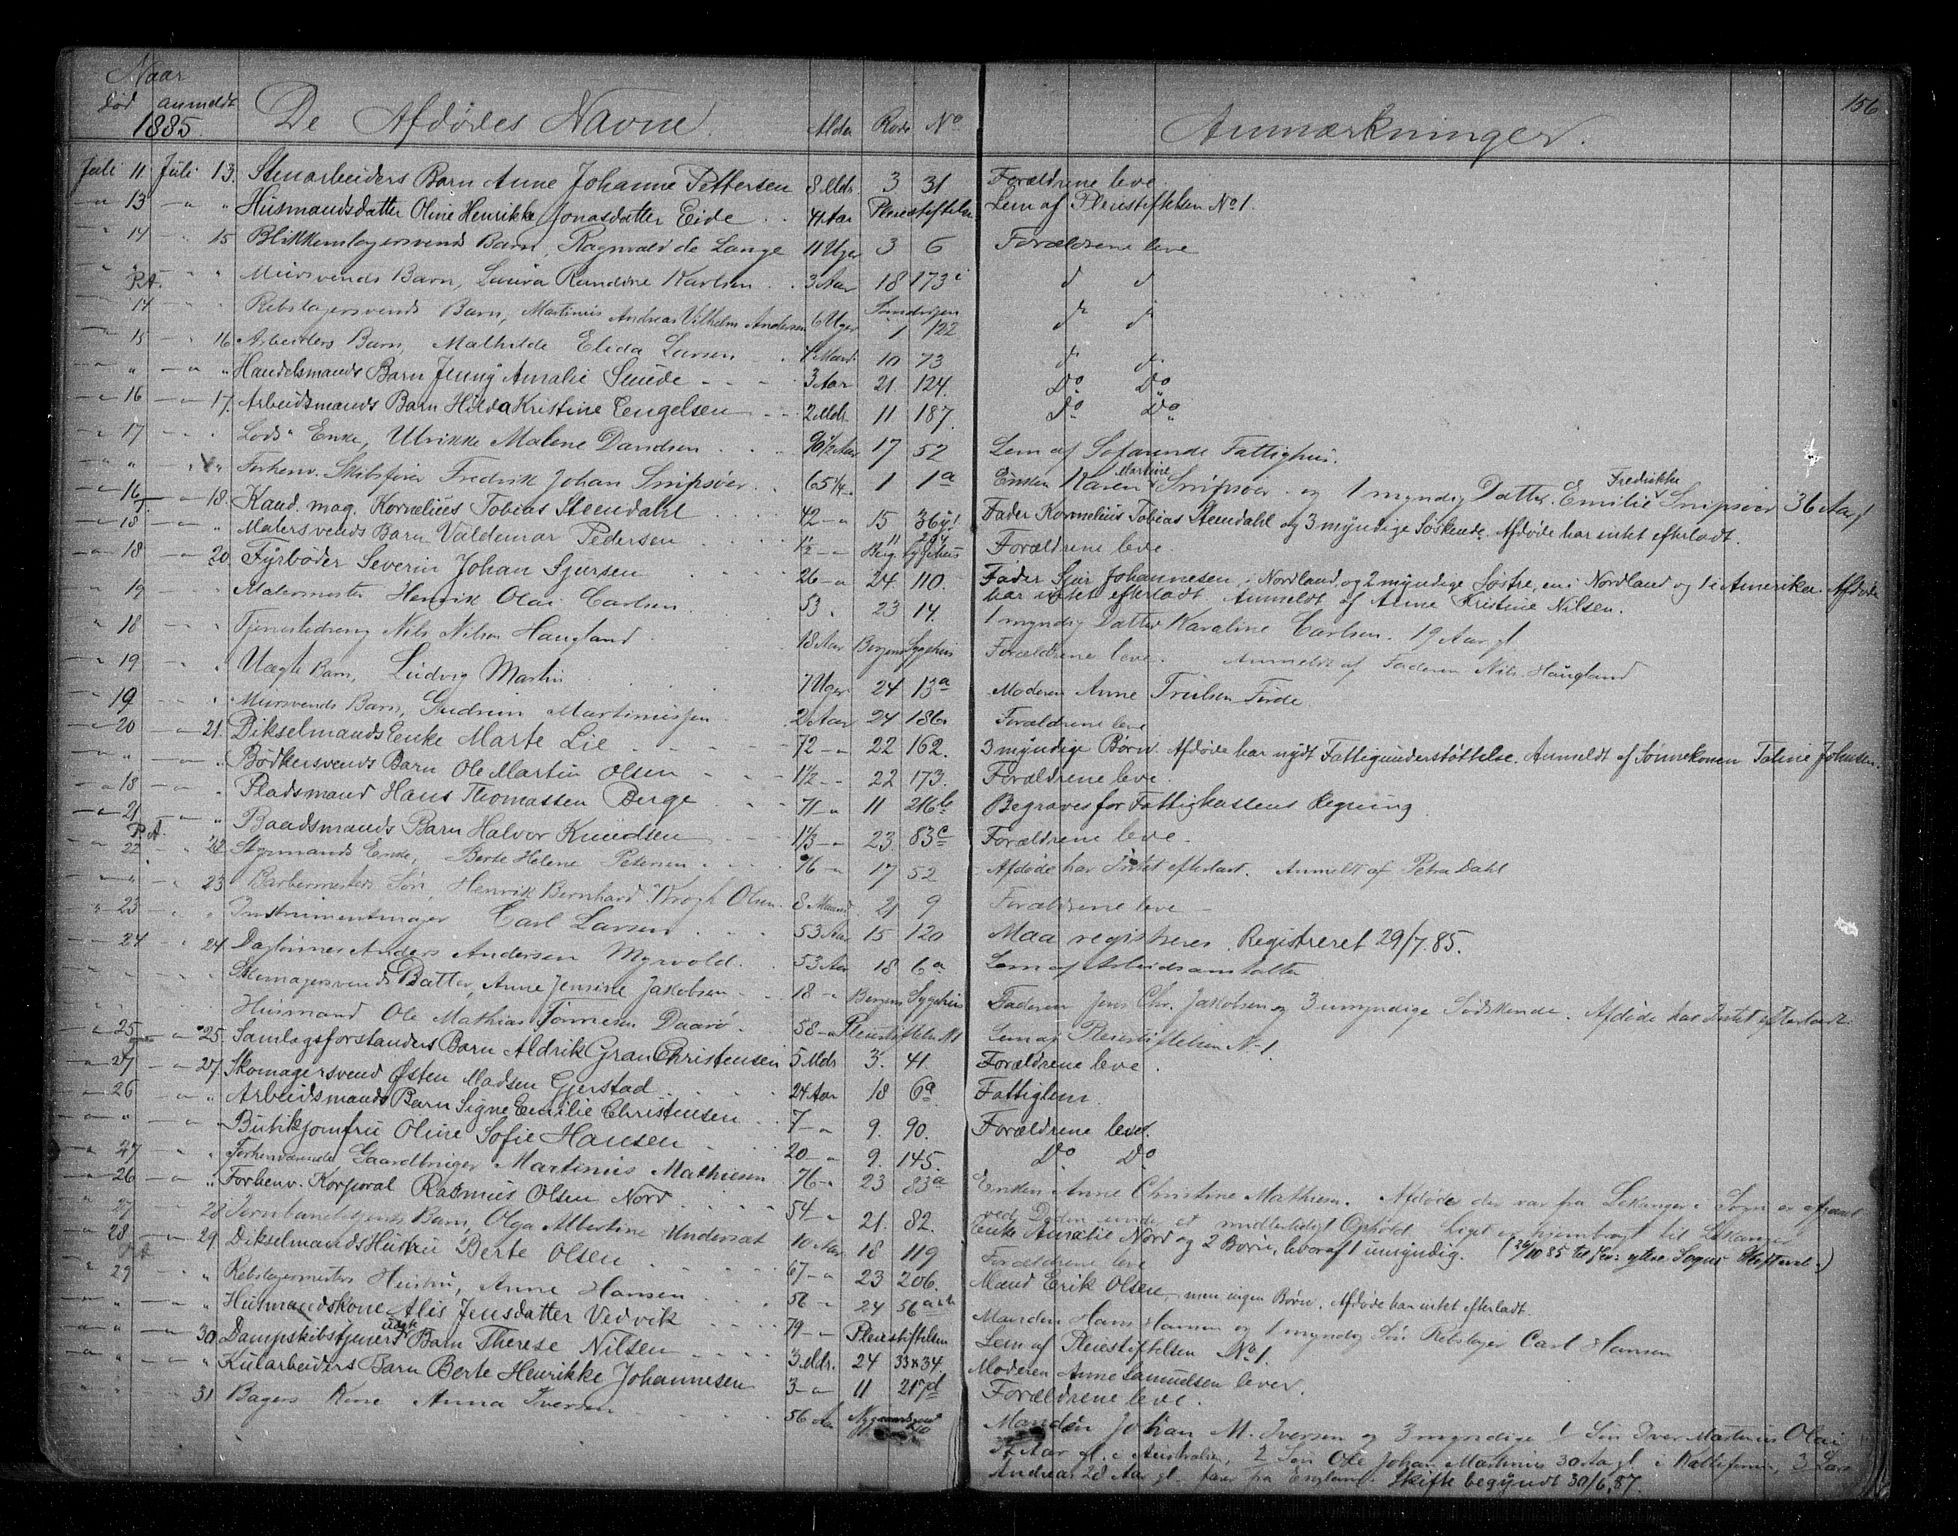 Naar
død anmeldt De Afdødes Navne. Alder Rode No Anmærkninger. 156
1885.
Juli 11 Juli 13. Stenarbeiders Barn Anne Johanne Pettersen 8 Mdr. 3 31 Forældrene leve.
" 13 " " Husmandsdatter Oline Henrikke Jonasdatter Eide 41 Aar Pleiestiftelsen Lem af Pleiestiftelsen No 1.
" 14 " 15 Blikkenslagersvends Barn, Ragnvald de Lange 11 Uger 3 6 Forældrene leve
" " " " Mursvends Barn, Laura Randine Karlsen 3 Aar 18 173
P.A.
14 Rebslagersvends Barn, Martinius Andreas Vilhelm Andersen 6 Uger 1 122
" 15 " 16 Arbeiders Barn, Mathilde Elida Larsen 10 73
" " " " Handelsmands Barn Jenny Amalie Smede 3 Aar 21 124. Do Do
" 16 " 17. Arbeidsmands Barn Hilda Kristine Engelsen 2 Mdr. 11 187. Do Do
" 17 " " Lods Enke, Ulrikke Malene Davidsen 90 1/2 Aar 17 52 Lem af Søfarende Fattighus.
" " " " Forhenv. Skibsfører Fredrik Johan Snipsøer 65 1 1a Enken Karen Martine Snipsøer og 1 myndig Datter Emilie Fredrikke Snipsøer 36 Aar
" 16 " 18. Kand. mag. Kornelius Tobias Stendahl 42 " 15 Fader Kornelius Tobias Stendahl og 3 myndige Søskende. Afdøde har intet efterladt.
" 18 " " Malersvends Barn Valdemar Pedersen 1 1/2 " Forældrene leve.
" 18 " 20. Fyrbøder Severin Johan Sjursen 26 " 24 110. Fader Sjur Johannesen, i Nordland, og 2 myndige Søstre, en i Nordland og 1 i Amerika. Afdøde
har intet efterladt. Anmeldt af Anne Kristine Nilsen.
" 19 " " Malermester Henrik Olai Carlsen 53 " 23 14. 1 myndig Datter Karoline Carlsen. 19 Aar gl
" 18 " " Tjenestedreng Nils Nilsen Haugland 18 Aar Bergens Sygehus Forældrene leve. Anmeldt af Faderen Nils Haugland
" 19 " " Uægte Barn, Ludvig Martin 7 Uger 24 13a Moderen Anne Trulsen Førde.
19 " " Mursvends Barn, Gudrun Martinussen 2 Aar 24 186 Forældrene leve
" 20 " 21. Dikselmands Enke Marte Lie 72 " 22 162. 3 myndige Børn. Afdøde har nydt Fattigunderstøttelse. Anmeldt af Sønnekonen Taline Johnsen.
" " " " Bødkersvends Barn Ole Martin Olsen 1 1/2 " 22 173. Forældrene leve.
" 18 " " Pladsmand Hans Thomassen Berge 71 " 11 216b Begraves for Fattigkassens Regning
" 21 " " Baadsmands Barn Halvor Knudsen 1 1/3 " 23. 83c Forældrene leve.
P.A.
22 " 22 Styrmands Enke, Berte Helene Petersen 76 " 17 52 Afdøde har Intet efterladt. Anmeldt af Petra Dahl
" " " 23 Barbermesters Søn, Henrik Bernhard Krogh Olsen 8 Maaned 21 9 Forældrene leve
" 23 " " Instrumentmager Carl Larsen 53 Aar 15 120 Maa registreres. Registreret 29/7.85.
" 24 " 24 Daglønner Anders Andersen Myrvold. 53 Aar 18 6a Lem af Arbeidsanstalten
Skomagersvends Datter, Anne Jensine Jakobsen 18 " Bergens Sygehus Faderen Jens Chr. Jakobsen og 3 umyndige Sødskende. Afdøde har Intet efterladt.
Husmand Ole Mathias Tønnesen Daarø. 58 " Pleiestiftelsen N 1 Lem af Pleiestiftelsen N 1.
" 25 " 25. Samlagsforstanders Barn Aldrik Gran Christensen 5 Mdr 3. 41. Forældrene leve.
" 27 " 27 Skomagersvend Østen Madsen Gjerstad 24 Aar 18 6a Fattiglem.
" 26 " " Arbeidsmands Barn Signe Emilie Christensen 7 " 9. 90. Forældrene leve.
" " " " Butikjomfru Oline Sofie Hansen 20 " 9. 145. Do Do
" 27 " " Forhenværende Gaardbruger Martinus Mathiesen 76 " 23 83a Enken Anne Christine Mathiesen. Afdøde der var fra Lekanger i Sogn er afgaaet
ved Døden under et midlertidigt Ophold. Liget er hjembragt til Lekanger
" 26 " " Forhenv. Korporal Rasmus Olsen Nord 54 " 21. 82. Enke Amalie Nord og 2 Børn, hvoraf 1 umyndig.
" 27 28 Jernbanebetjents Barn, Olga Albertine Undersat 10 Aar 18 119 Forældrene leve
" 28 " 29. Dikselmands Hustru Berte Olsen 67 " 23 206. Mand Erik Olsen, men ingen Børn. Afdøde har intet efterladt.
" 29 " " Rebslagermesters Hustru, Anne Hansen 56 " 24 56 Manden Hans Hansen og 1 myndig Søn Rebslager Carl Hansen
" " " " Husmandskone Alis Jensdatter Vedvik 79 " Pleiestiftelsen Lem af Pleiestiftelsen No 1.
" " " 30. Dampskibstjeners uægte Barn Therese Nilsen 3 Mdr. 24 33 34. Moderen Anne Samuelsen lever.
" " " " Kularbeiders Barn Berte Henrikke Johannesen 3 " 11 217d Forældrene leve.
" 31 Bagers Kone Anna Iversen 56 Aar Manden Johan M. Iversen og 3 myndige 1 Søn Iver Martinus Olai
Aar gl. i Australien, 2 Søn Ole Johan Martinius 30 Aar gl. i Kalifornia, 3 Lars
Andreas 28 Aar gl. farer fra England. Skifte begyndt 30/6.87.